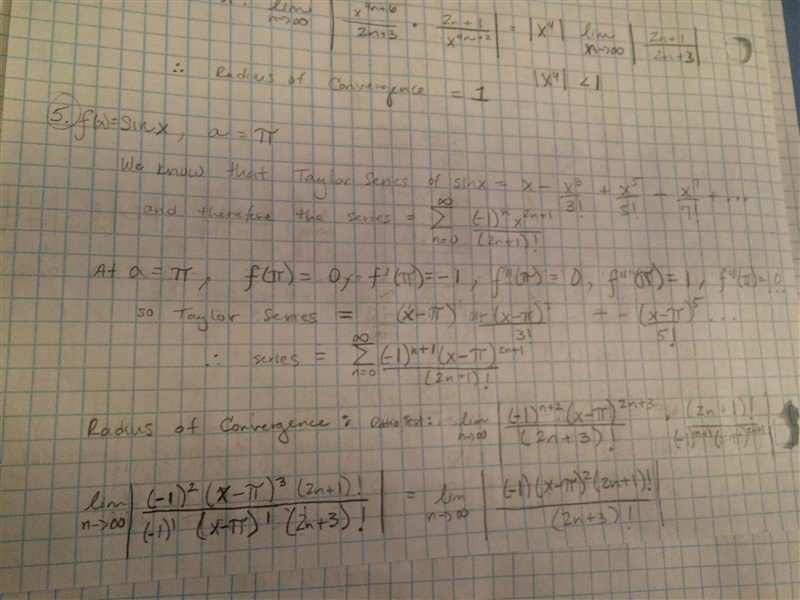 lim n→∞ | x^{4n+6}/(2n+3) · (2n+1)/x^{4n+2} | = |x^4| lim n→∞ | (2n+1)/(2n+3) |
∴ Radius of Convergence = 1 |x^4| < 1
5. f(x)=sinx, a = π
We know that Taylor Series of sinx = x - x^3/3! + x^5/5! - x^7/7! + ...
and therefore the series = ∑_{n=0}^{∞} (-1)^n x^{2n+1}/(2n+1)!
At a = π, f(π) = 0, f'(π) = -1, f''(π) = 0, f'''(π) = 1, f⁴(π) = 0
so Taylor Series = -(x-π) + (x-π)^3/3! + - (x-π)^5/5! ...
∴ series = ∑_{n=0}^{∞} (-1)^{n+1} (x-π)^{2n+1}/(2n+1)!
Radius of Convergence: Ratio Test: lim n→∞ | (-1)^{n+2} (x-π)^{2n+3}/(2n+3)! · (2n+1)!/((-1)^{n+1} (x-π)^{2n+1}) |
lim n→∞ | (-1)^2 (x-π)^3 (2n+1)!/((-1)^1 (x-π)^1 (2n+3)!) | = lim n→∞ | (-1)(x-π)^2 (2n+1)!/(2n+3)! |